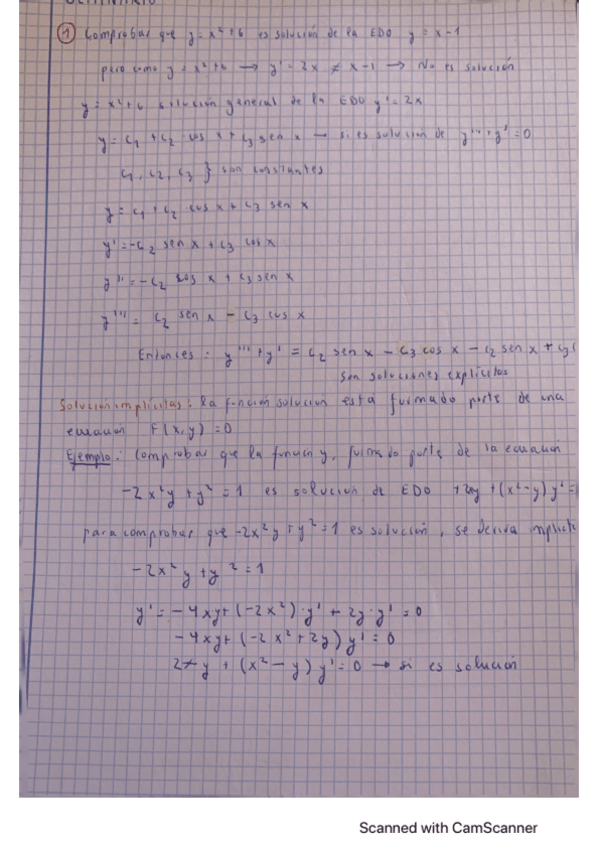 ① Comprobar que y = x² + 6 es solución de la EDO y = x - 1
pero como y = x² + 6 → y' = 2x ≠ x - 1 → No es solución
y = x² + 6 solución general de la EDO y' = 2x
y = c₁ + c₂ cos x + c₃ sen x → si es solución de y''' + y' = 0
c₁, c₂, c₃ } son constantes
y = c₁ + c₂ cos x + c₃ sen x
y' = -c₂ sen x + c₃ cos x
y'' = -c₂ cos x + c₃ sen x
y''' = c₂ sen x - c₃ cos x
Entonces: y''' + y' = c₂ sen x - c₃ cos x - c₂ sen x + c₃
son soluciones explícitas
Solución implícitas: la función solución está formado parte de una
ecuación F(x, y) = 0
Ejemplo: Comprobar que la función y, formado parte de la ecuación
-2x²y + y² = 1 es solución de EDO + 2xy + (x² - y) y' =
para comprobar que -2x²y + y² = 1 es solución, se deriva
-2x²y + y² = 1
y' = -4xy + (-2x²) · y' + 2y · y' = 0
-4xy + (-2x² + 2y) y' = 0
2xy + (x² - y) y' = 0 → si es solución
Scanned with CamScanner